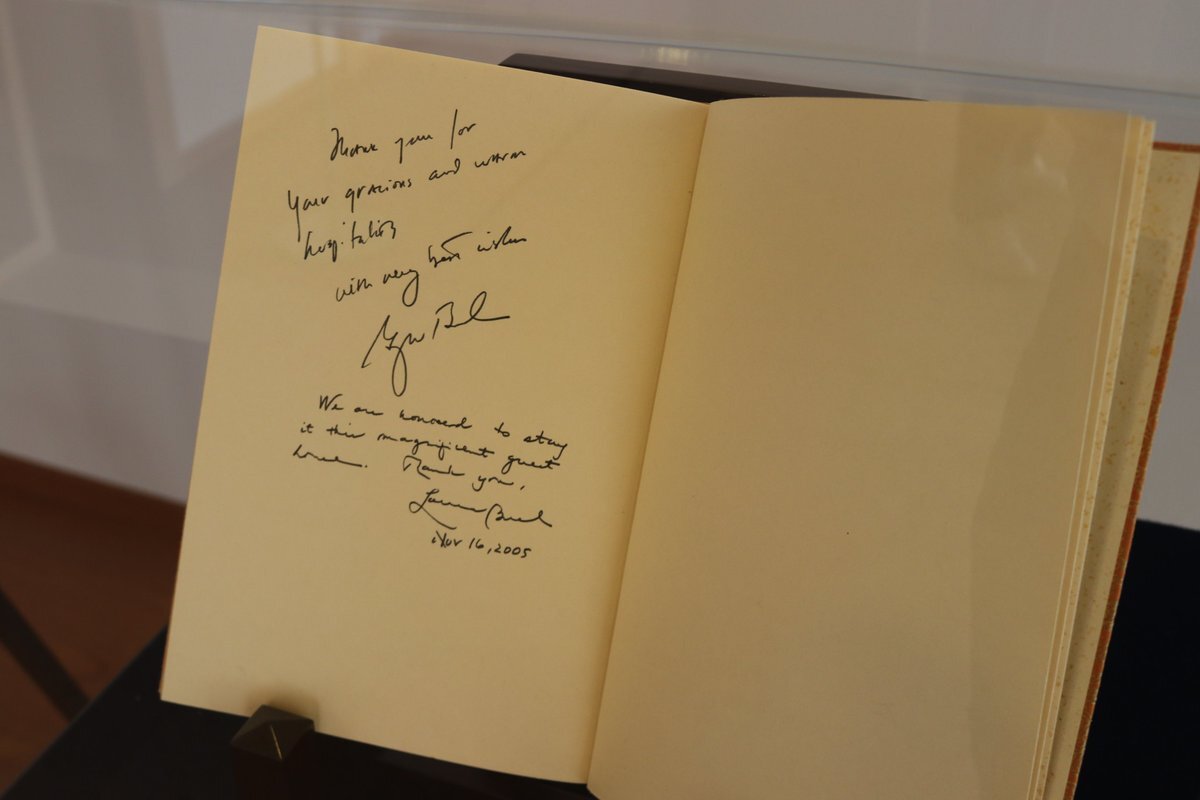 Thank you for
your gracious and warm
hospitality
with very best wishes
George Bush
We are honored to stay
it this magnificent guest
house. Thank you,
Laura Bush
Nov 16, 2005